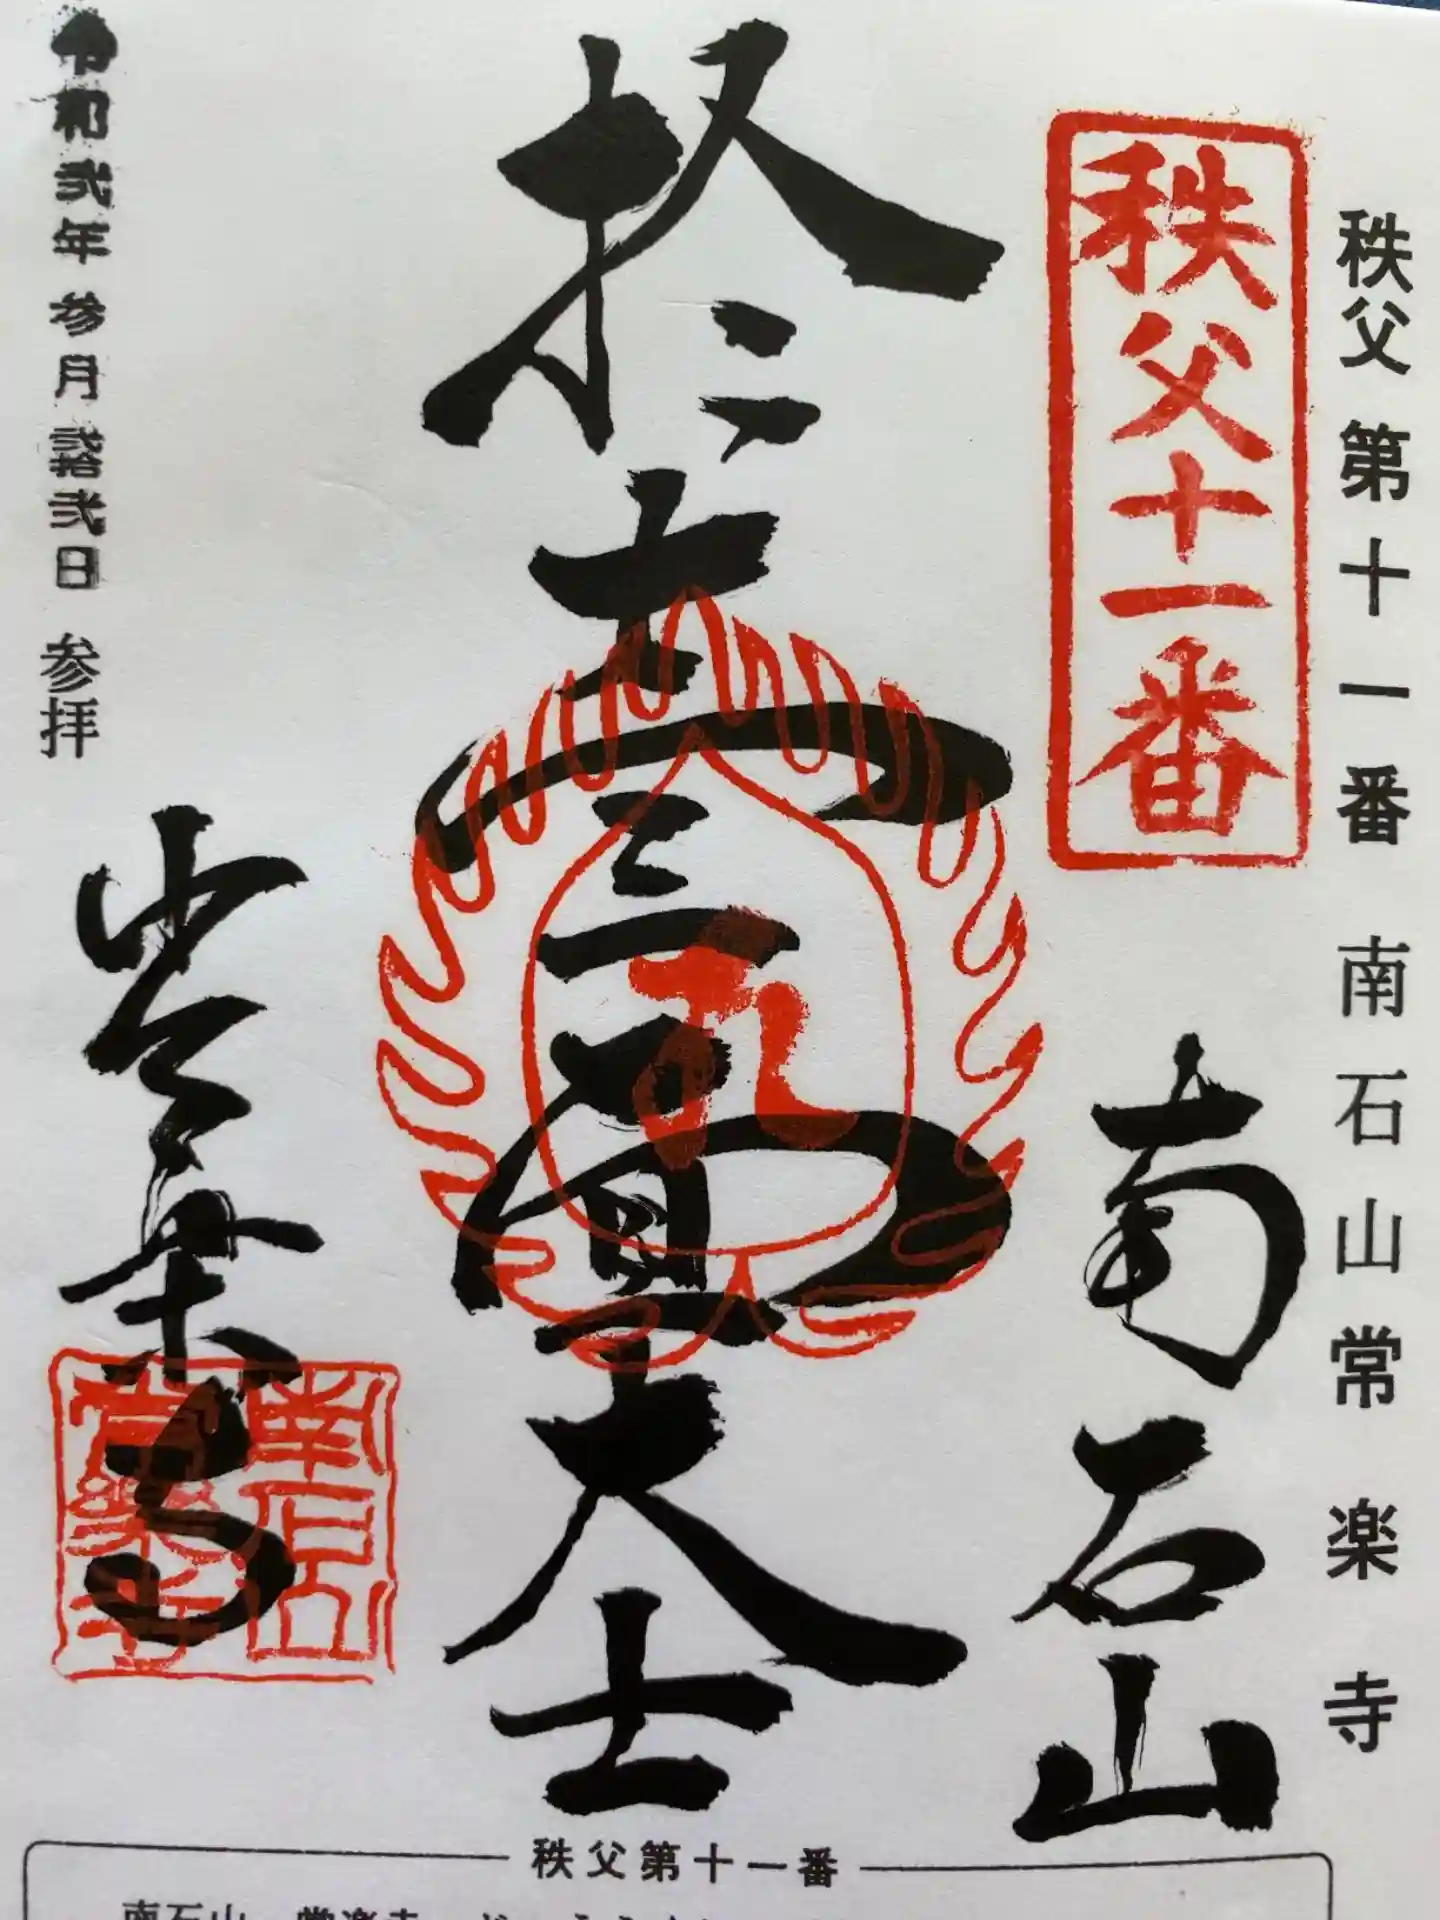 秩父 第十一番 南石山常楽寺
秩父十一番
南石山
拾壹面大士
令和弐年参月弐拾弐日 参拝
常楽寺
南石山
常楽寺
秩父第十一番
南石山 常楽寺